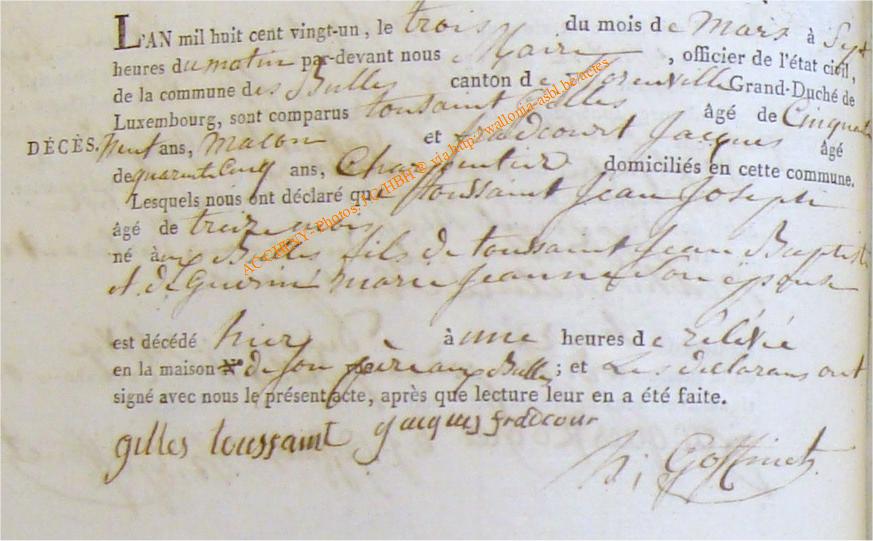 L'AN mil huit cent vingt-un, le trois du mois de Mars à Sept
heures du matin par-devant nous Maire, officier de l'état civil,
de la commune des Bulles canton de Florenville Grand-Duché de
Luxembourg, sont comparus toussaint Gilles âgé de Cinquante
DÉCÈS. Neuf ans, Macon et fradcourt Jacques âgé
de quarente Cinq ans, Charpentier domiciliés en cette commune.
Lesquels nous ont déclaré que toussaint Jean Joseph
âgé de treize mois
né aux Bulles fils de toussaint Jean Baptiste
et de Guerin marie Jeanne Son epouse
est décédé hier à une heures de rélevée
en la maison de son père aux Bulles; et Les déclarans ont
signé avec nous le présent acte, après que lecture leur en a été faite.
gilles toussaint jacques fradcour
h; Goffinet
ACCHENY - Photos, TC HBH © via http://wallonia-asbl.be/actes